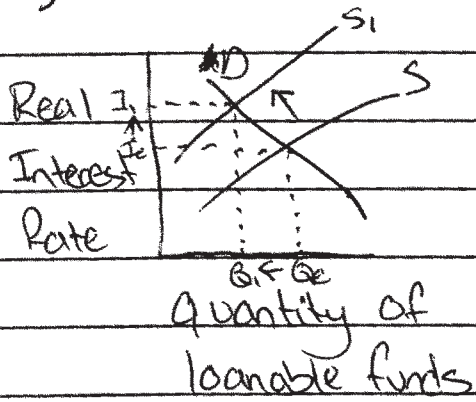 S₁
D
S
Real I₁
Interest Ie
Rate
Q₁ ← Qe
Quantity of
loanable funds